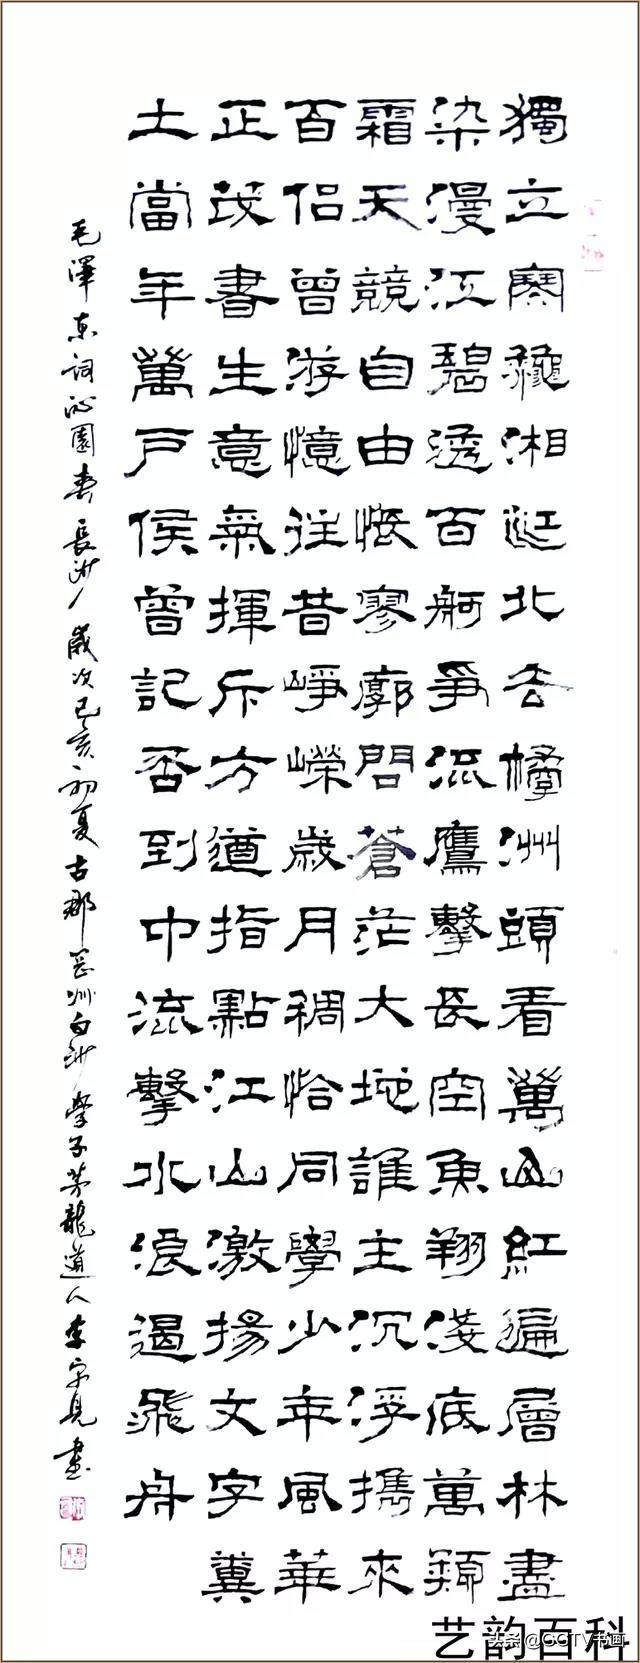 獨立寒龝湘江北去橘洲頭看萬山紅遍層林盡
染漫江碧透百舸爭流鷹擊長空魚翔淺底萬類
霜天競自由悵寥廓問蒼茫大地誰主沉浮攜來
百侶曾游憶往昔崢嶸歲月稠恰同學少年風華
正茂書生意氣揮斥方遒指點江山激揚文字糞
土當年萬戶侯曾記否到中流擊水浪遏飛舟
毛澤東詞沁園春長沙歲次己亥初夏古郡岡州白沙學子龍道人李宗見書
艺韵百科
头条@CCTV书画